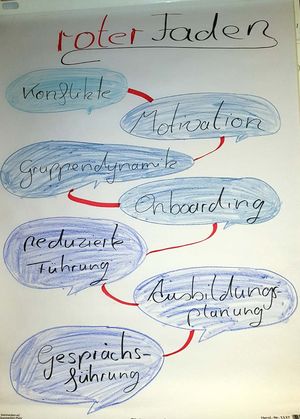 roter Faden
Konflikte
Motivation
Gruppendynamik
Onboarding
reduzierte
Führung
Ausbildungs-
planung
Gesprächs-
führung